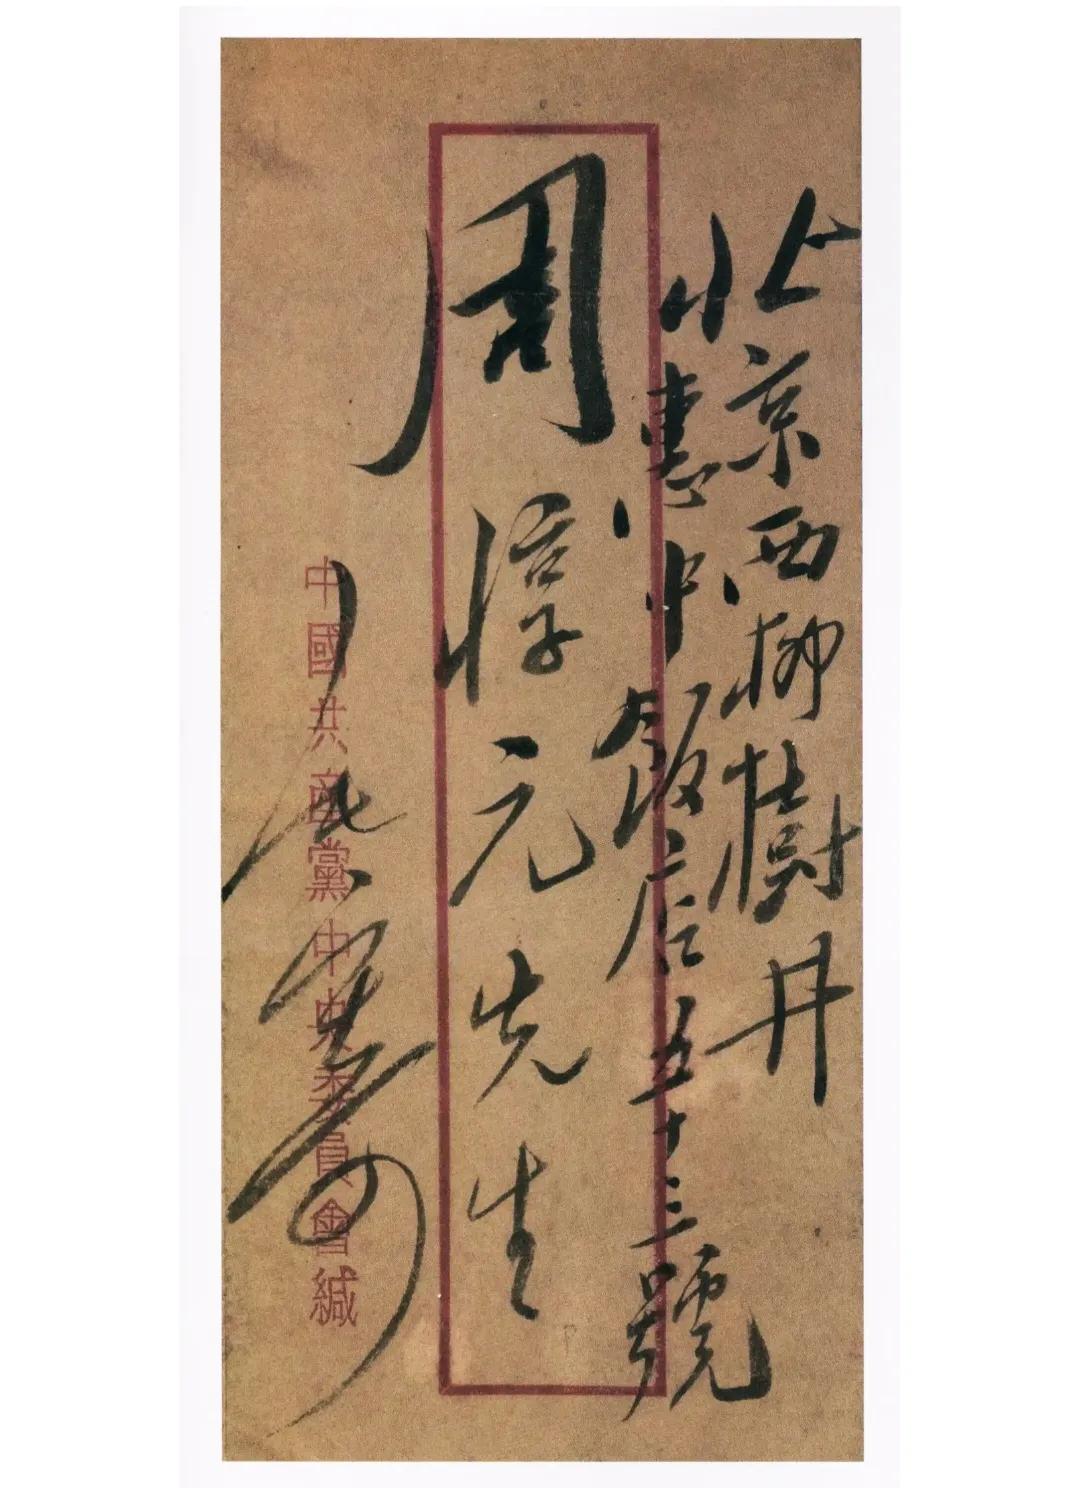 北京西柳樹井
惠中飯店五十三號
周惇元先生
中國共產黨中央委員會緘
毛寄